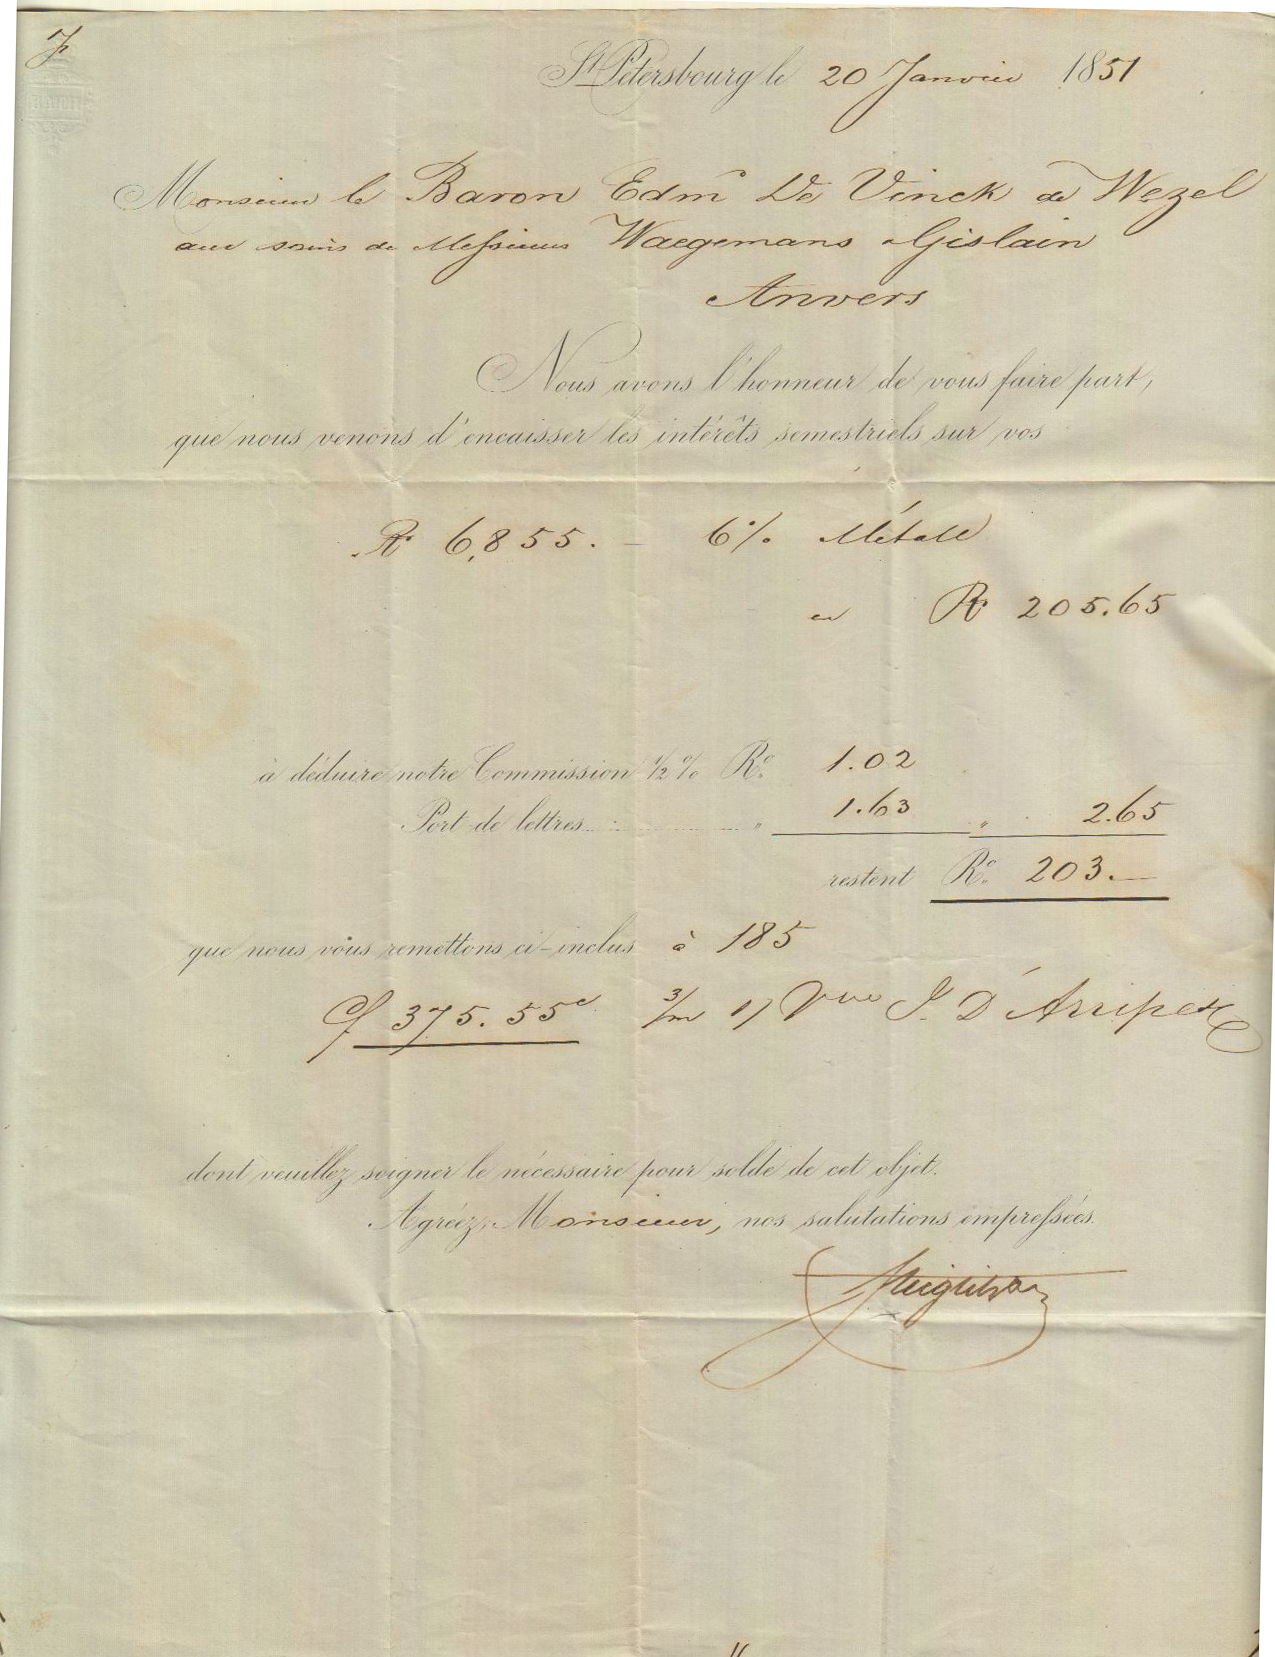 St Pétersbourg le 20 Janvier 1851
Monsieur le Baron Edmd De Vinck de Wezel
aux soins de Messieurs Waegemans Gislain
Anvers
Nous avons l'honneur de vous faire part,
que nous venons d'encaisser les intérêts semestriels sur vos
Rr 6,855. — 6% Métall
en Rr 205.65
à déduire notre Commission ½ % Ro. 1.02
Port de lettres " 1.63 " 2.65
restent Ro. 203.—
que nous vous remettons ci-inclus à 185
Cf 375.55c 3/m s/ Vve J. D'
dont veuillez soigner le nécessaire pour solde de cet objet.
Agréez, Monsieur, nos salutations empressées.
Stieglitz